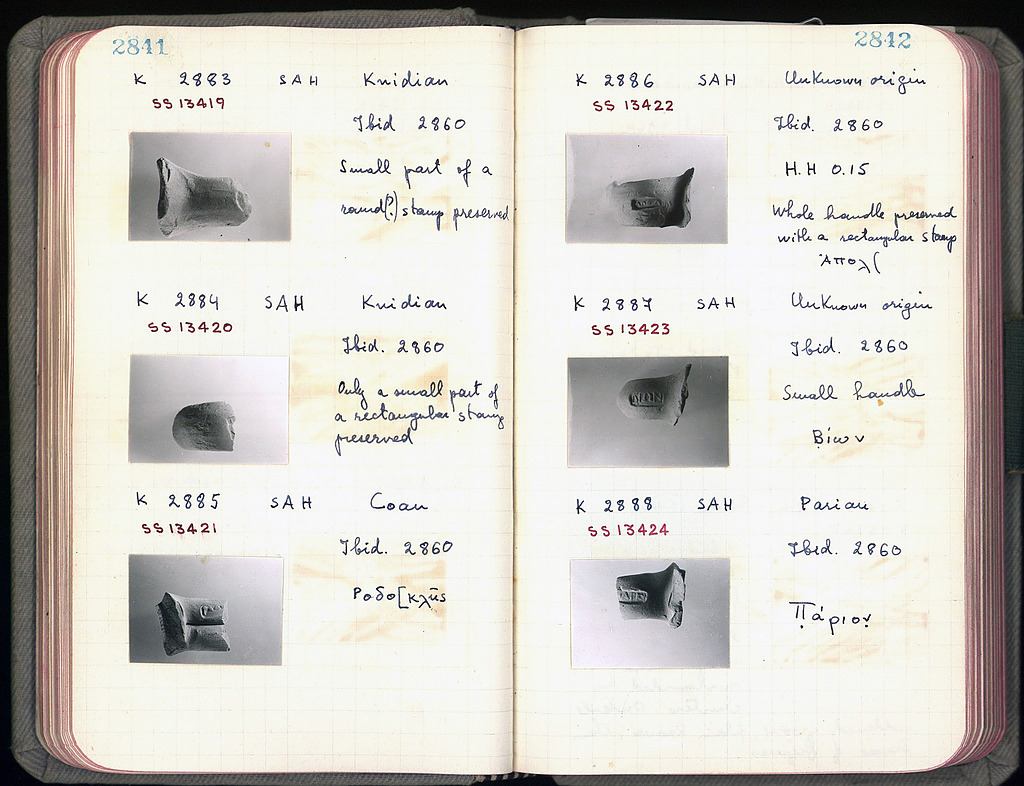 2841
K 2883 SAH Knidian
SS 13419
Ibid 2860
Small part of a
round(?) stamp preserved
K 2884 SAH Knidian
SS 13420
Ibid. 2860
Only a small part of
a rectangular stamp
preserved
K 2885 SAH Coan
SS 13421
Ibid. 2860
Ροδο[κλῆς
2842
K 2886 SAH Unknown origin
SS 13422
Ibid. 2860
H.H 0.15
Whole handle preserved
with a rectangular stamp
Ἀπολ(
K 2887 SAH Unknown origin
SS 13423
Ibid. 2860
Small handle
Β̣ίων
K 2888 SAH Parian
SS 13424
Ibid. 2860
Π̣άριον̣